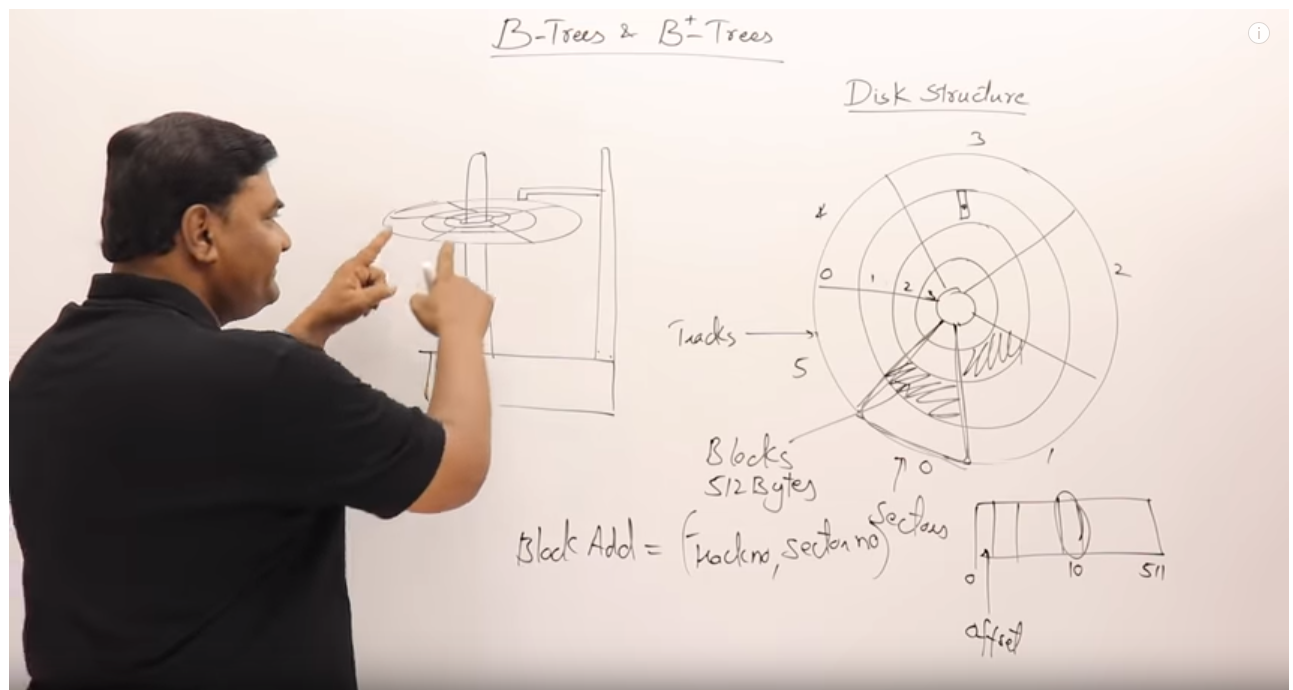 B-Trees & B+-Trees
Disk Structure
3
4
2
0 1 2
Tracks
5
1
0
Blocks
512 Bytes
Sectors
Block Add = (Track no, Sector no)
0 10 511
offset